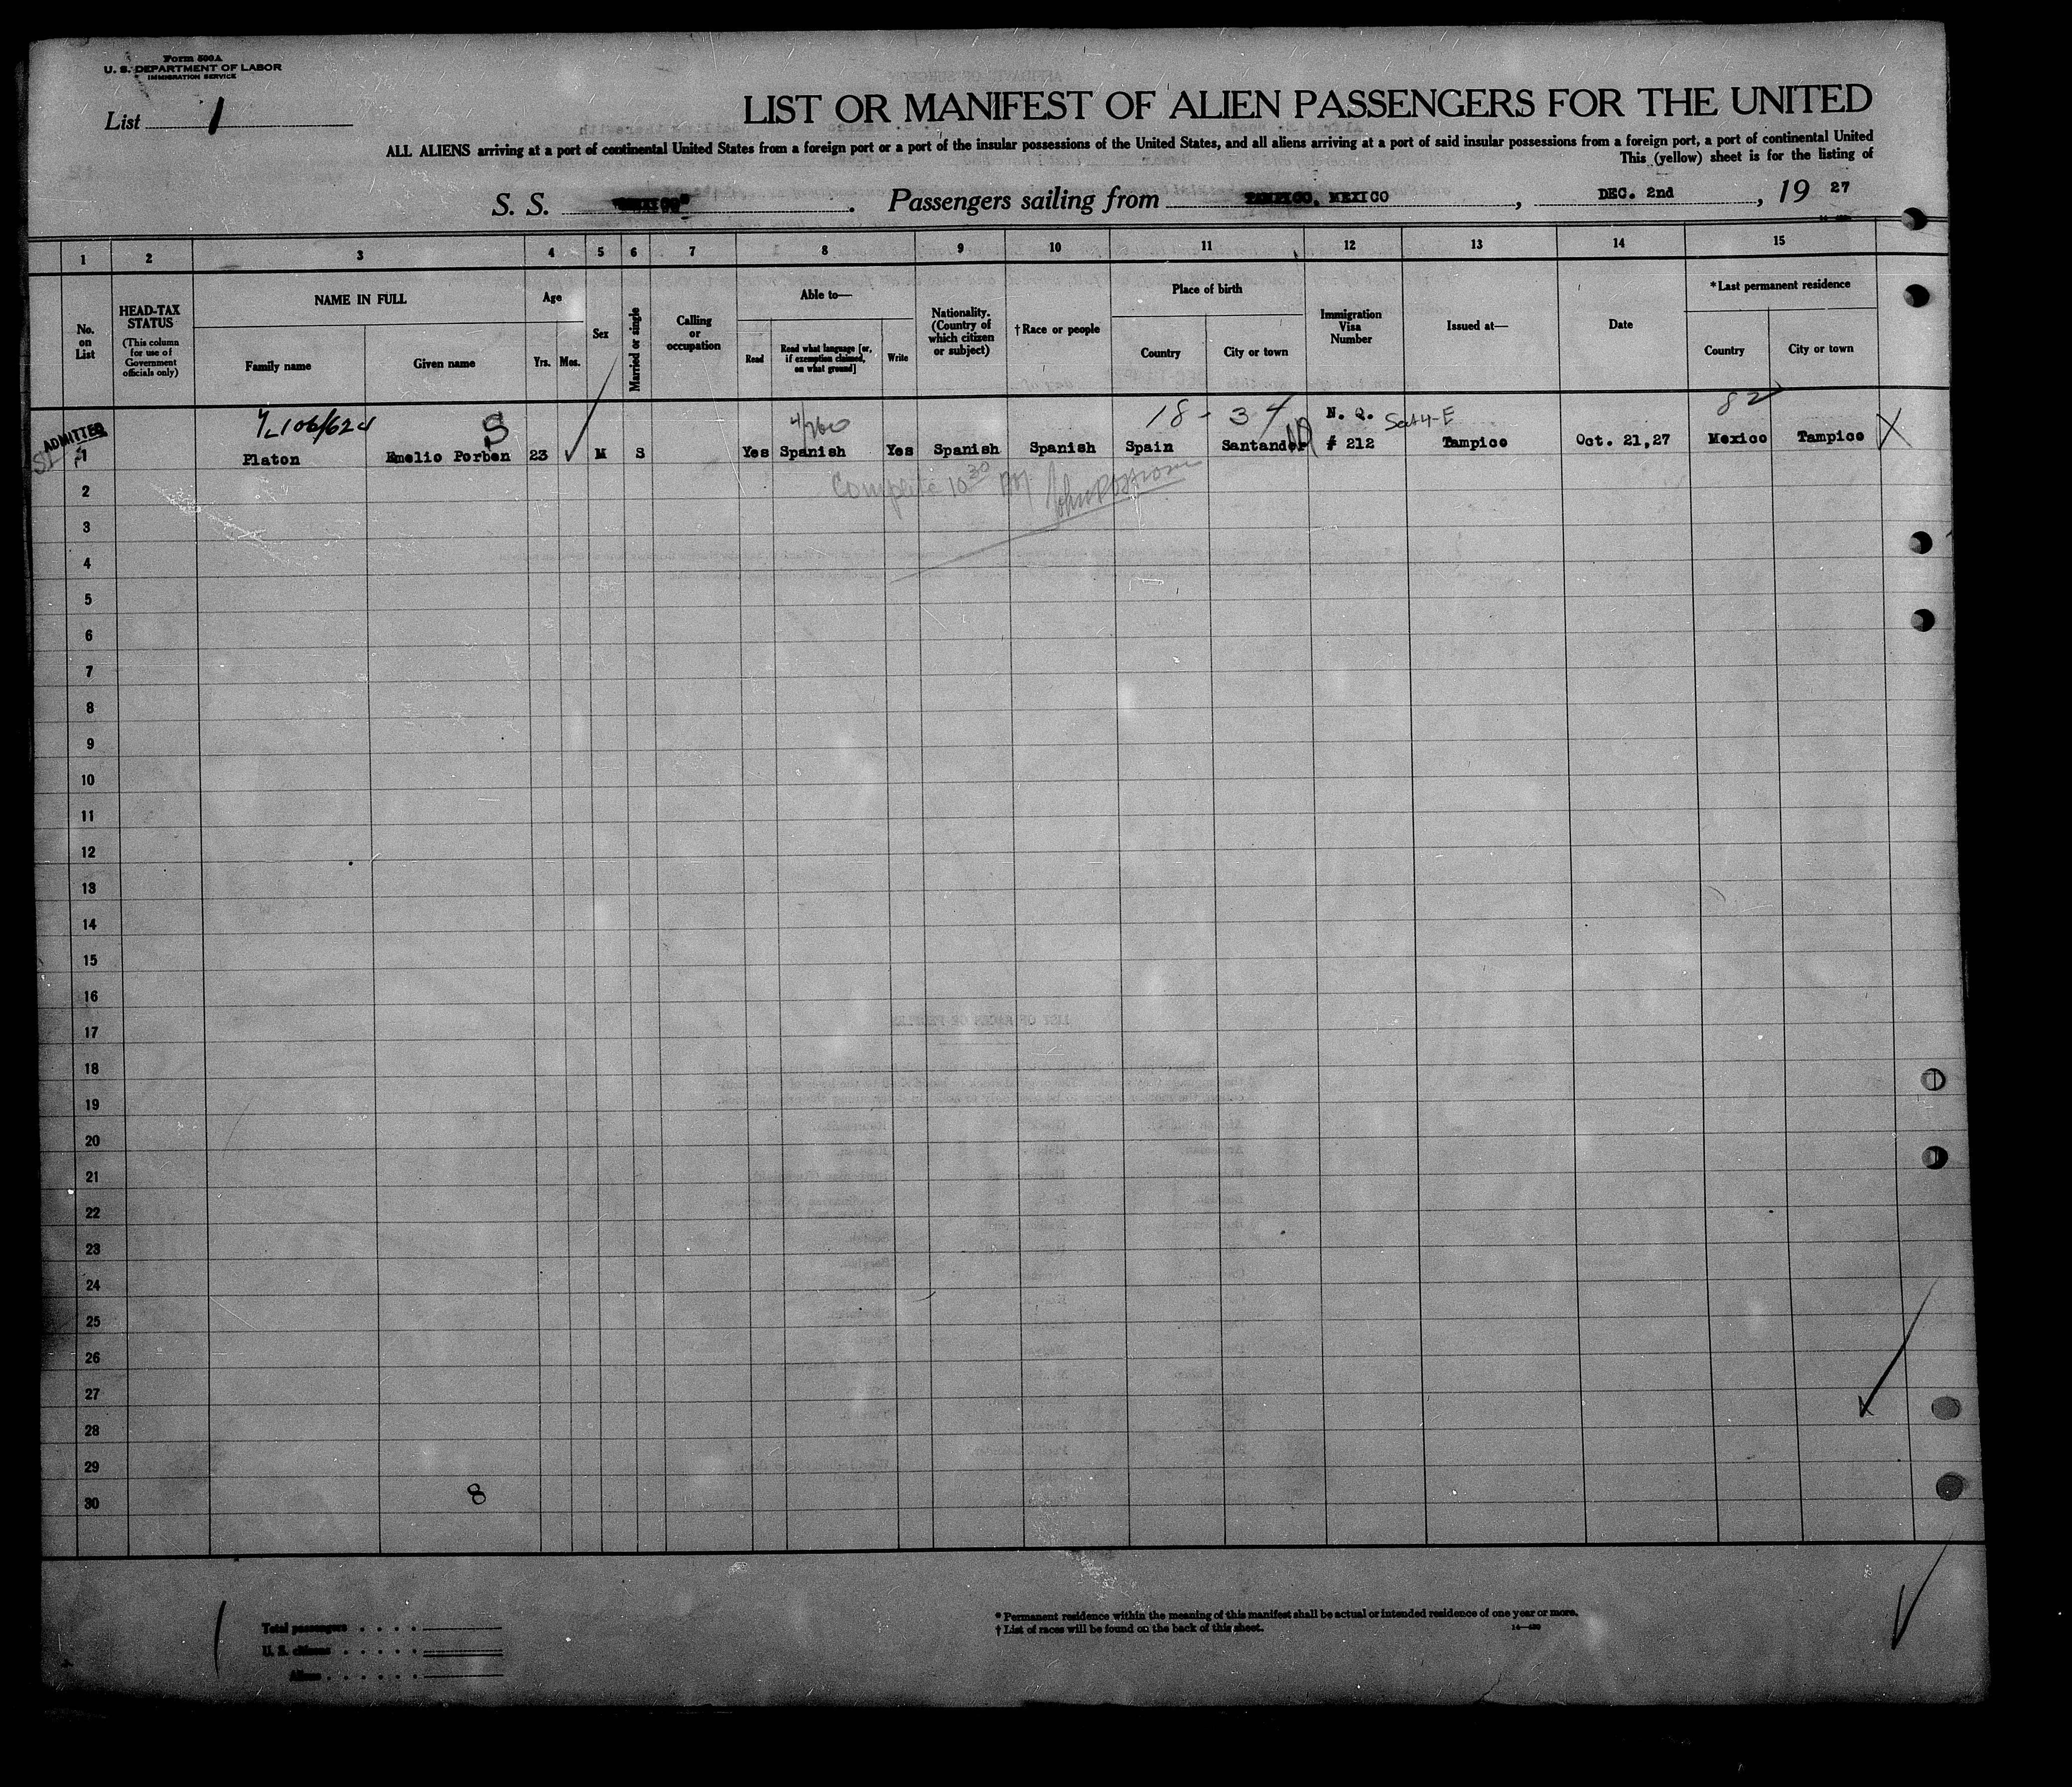 Form 500A
U. S. DEPARTMENT OF LABOR
IMMIGRATION SERVICE
List 1
LIST OR MANIFEST OF ALIEN PASSENGERS FOR THE UNITED
ALL ALIENS arriving at a port of continental United States from a foreign port or a port of the insular possessions of the United States, and all aliens arriving at a port of said insular possessions from a foreign port, a port of continental United
This (yellow) sheet is for the listing of
S. S. "MEXICO". Passengers sailing from TAMPICO, MEXICO, DEC. 2nd, 19 27
1 2 3 4 5 6 7 8 9 10 11 12 13 14 15
No. on List
HEAD-TAX STATUS (This column for use of Government officials only)
NAME IN FULL
Family name Given name
Age
Yrs. Mos.
Sex
Married or single
Calling or occupation
Able to—
Read Read what language [or, if exemption claimed, on what ground] Write
Nationality. (Country of which citizen or subject)
† Race or people
Place of birth
Country City or town
Immigration Visa Number
Issued at—
Date
*Last permanent residence
Country City or town
4/260 18 - 34 N. Q. Sec 4-E 82
S
ADMITTED
1 Platon Emelio Porben 23 M S Yes Spanish Yes Spanish Spanish Spain Santander # 212 Tampico Oct. 21,27 Mexico Tampico X
Complete 10 30
2
3
4
5
6
7
8
9
10
11
12
13
14
15
16
17
18
19
20
21
22
23
24
25
26
27
28
29
30
8
Total passengers
U. S. citizens
Aliens
* Permanent residence within the meaning of this manifest shall be actual or intended residence of one year or more.
† List of races will be found on the back of this sheet.